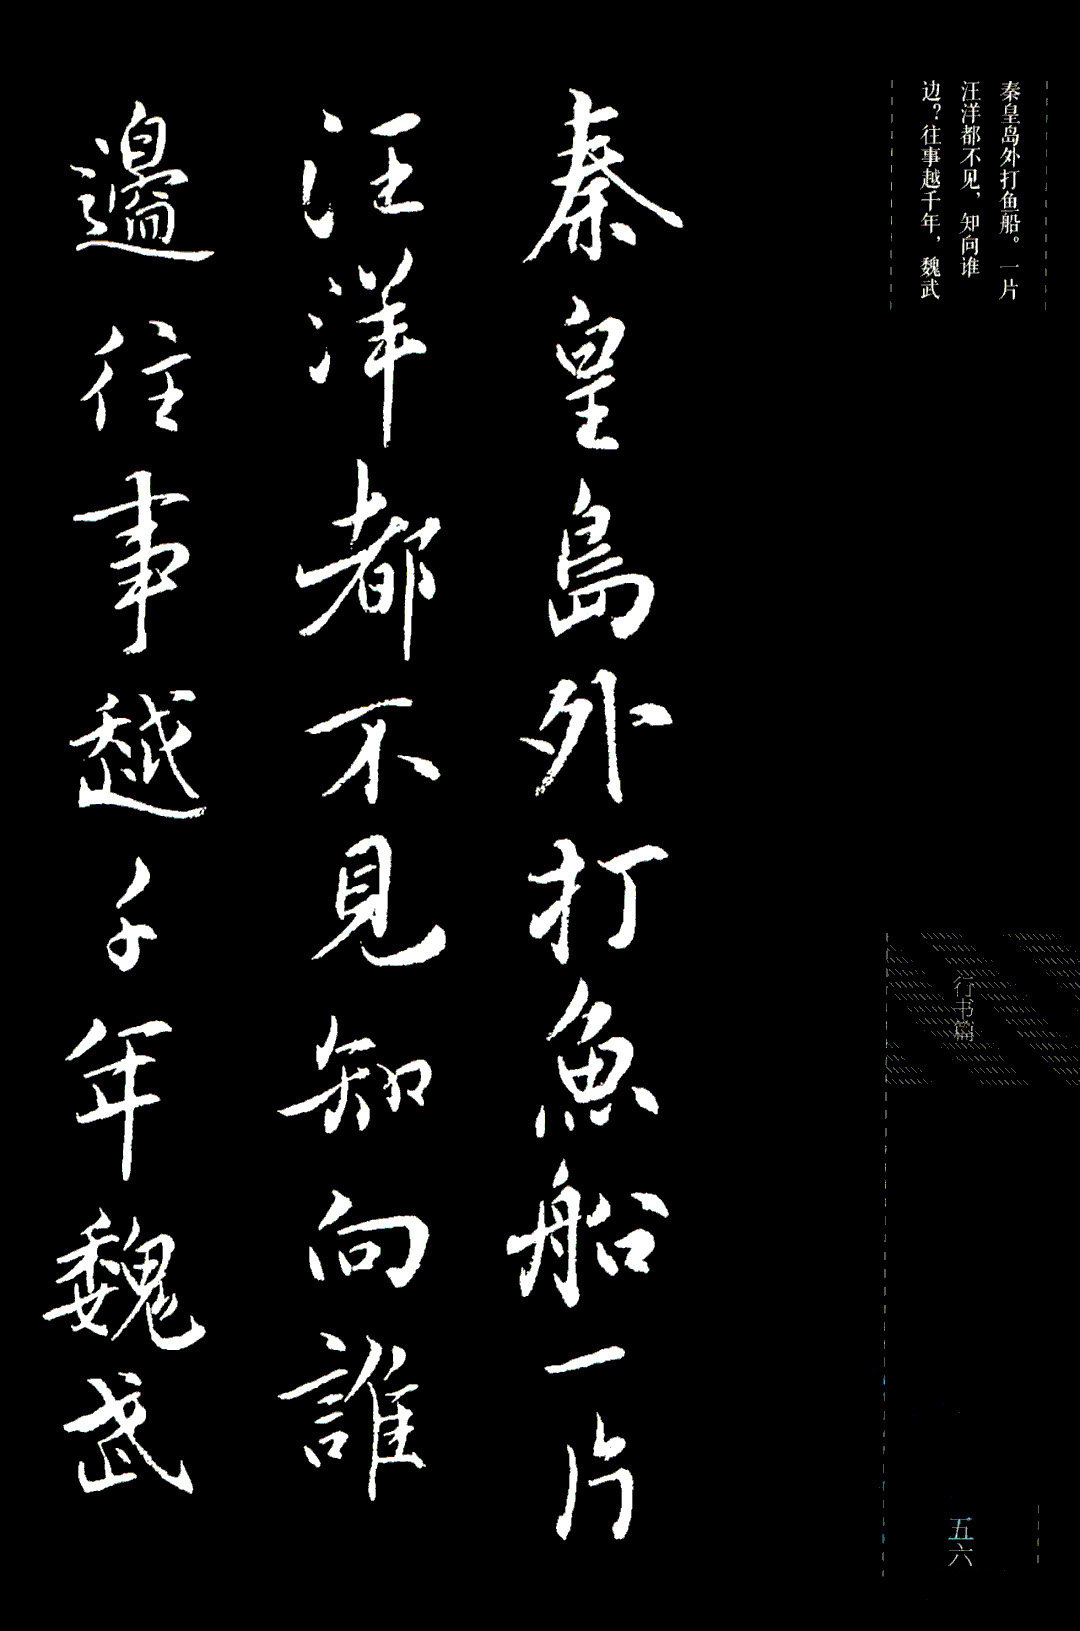 秦皇岛外打鱼船。一片
汪洋都不见，知向谁
边？往事越千年，魏武
秦皇島外打魚船一片
汪洋都不見知向誰
邊往事越千年魏武
行书篇
五六